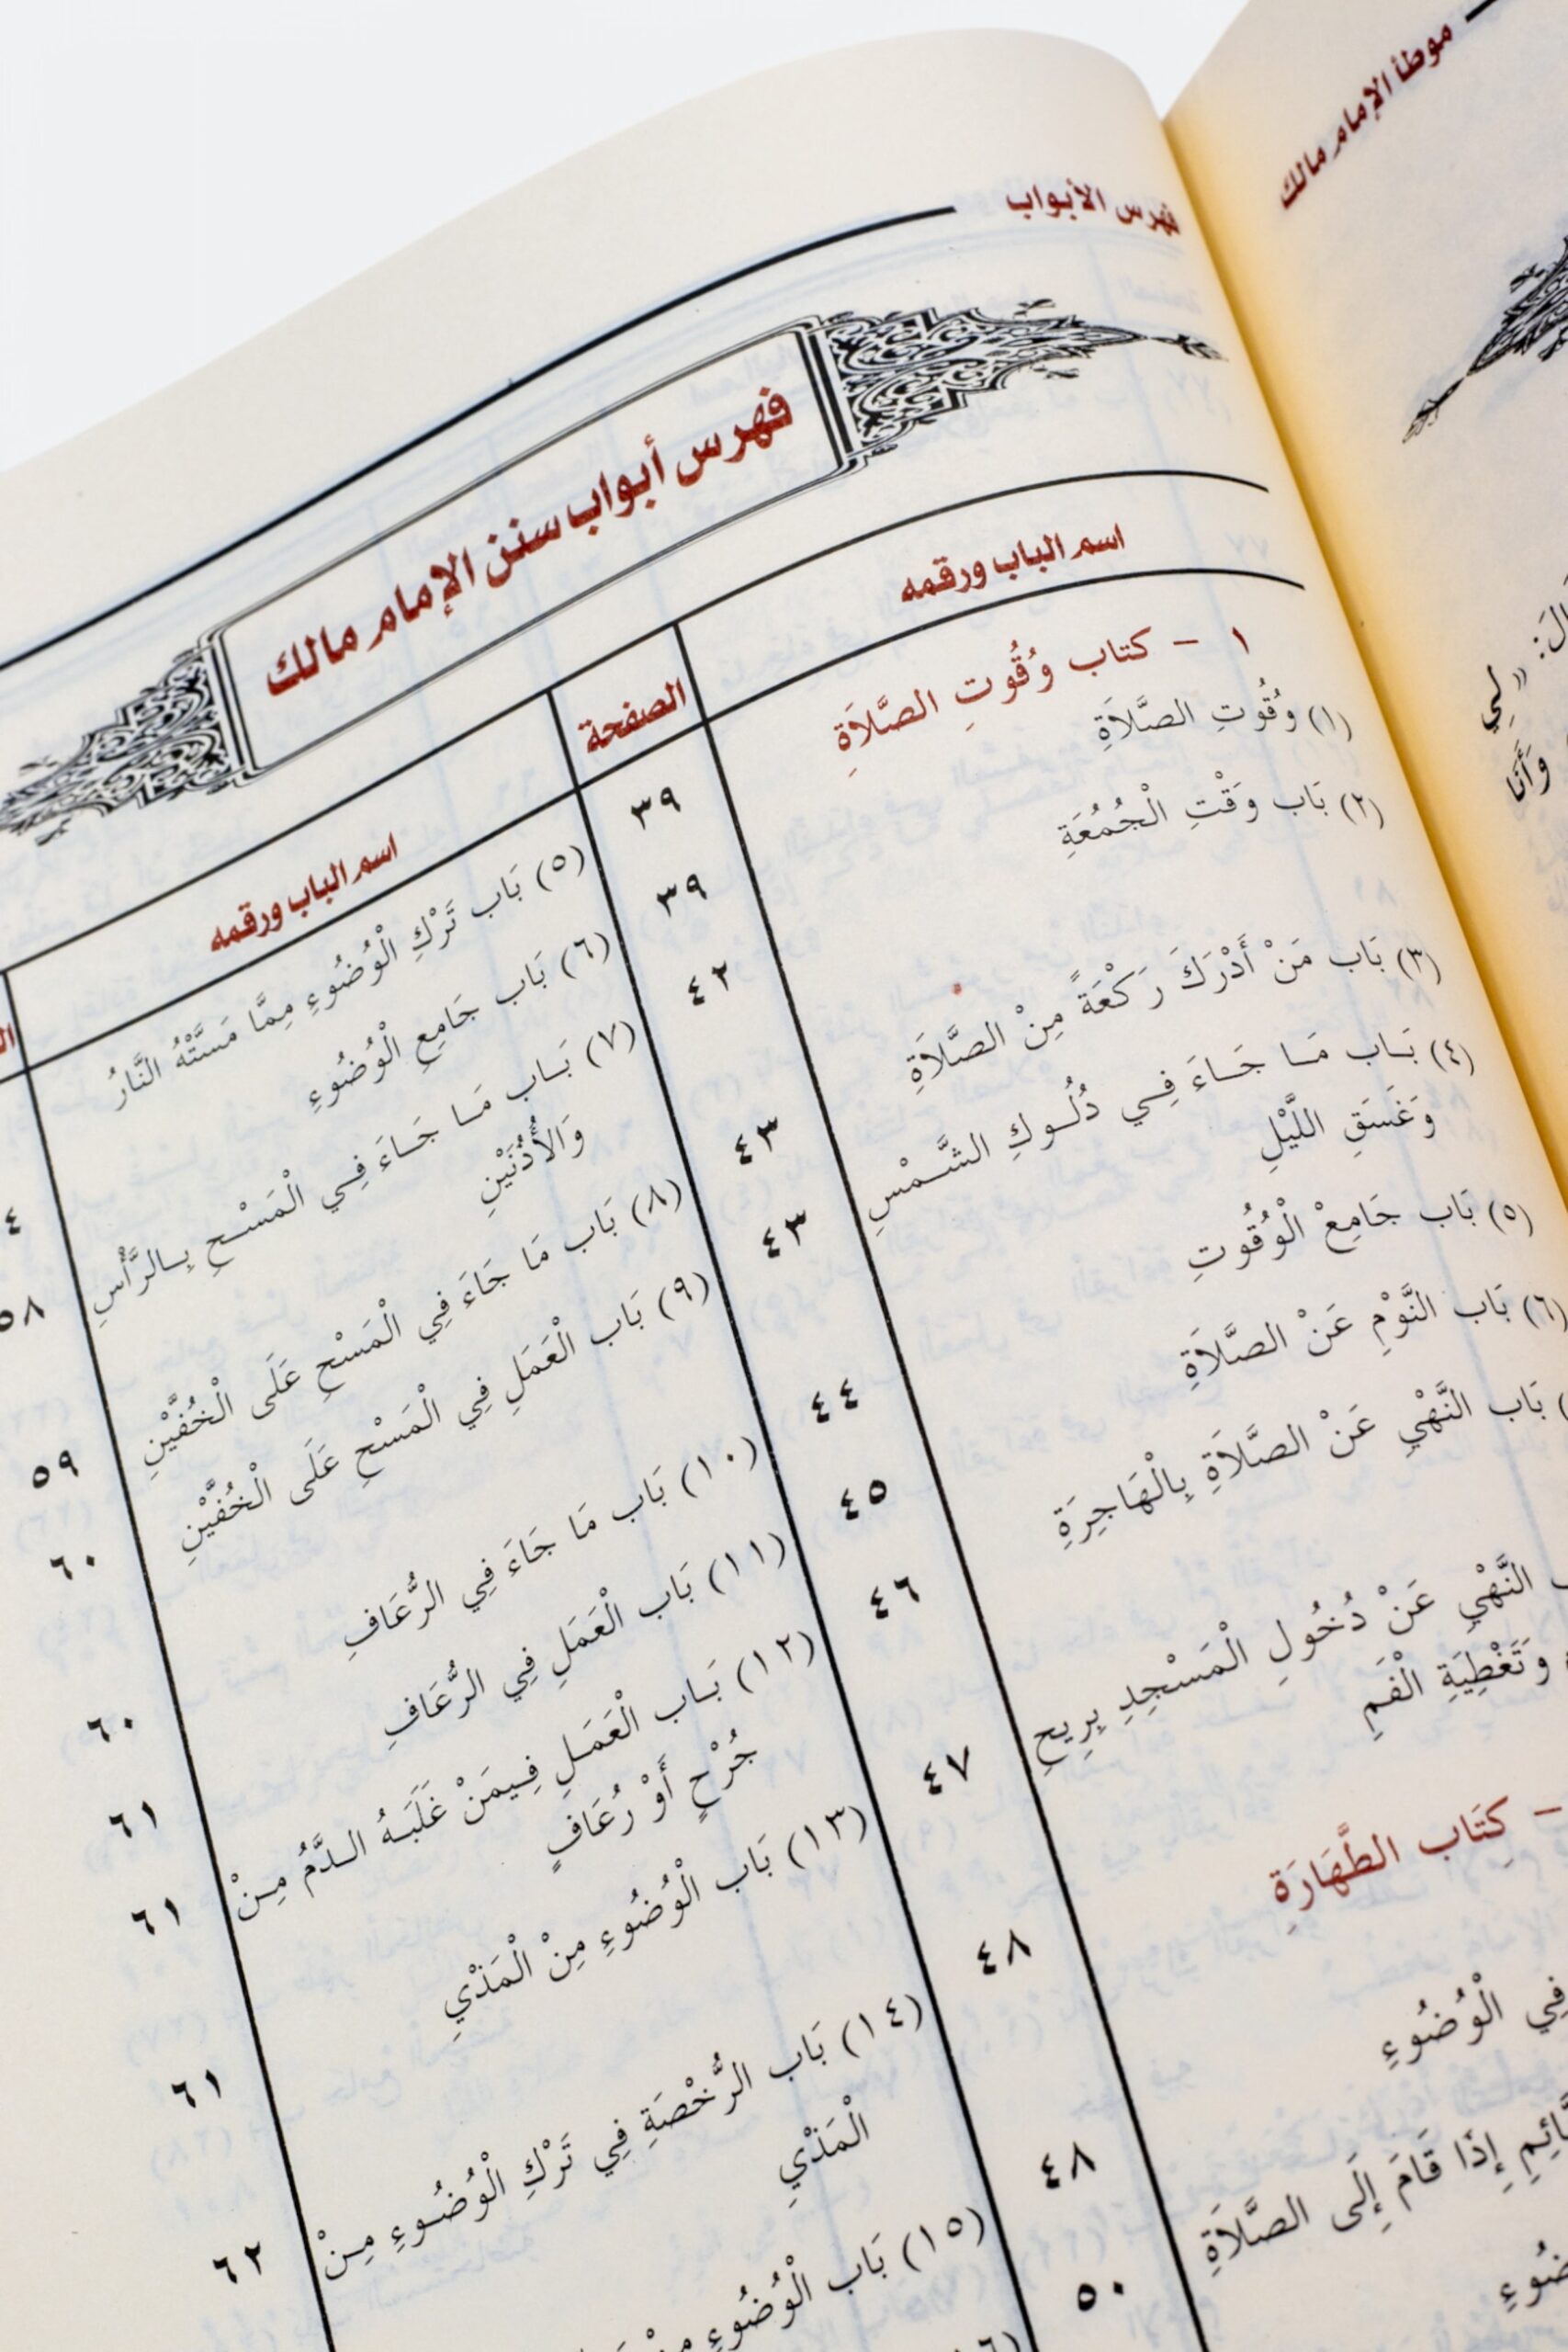 موطأ الإمام مالك
فهرس الأبواب
فهرس أبواب سنن الإمام مالك
اسم الباب ورقمه
الصفحة
١ - كتاب وُقُوتِ الصَّلاَةِ
٣٩
(١) وُقُوتِ الصَّلاَةِ
٣٩
(٢) بَاب وَقْتِ الْجُمُعَةِ
٤٢
(٣) بَاب مَنْ أَدْرَكَ رَكْعَةً مِنْ الصَّلاَةِ
٤٣
(٤) بَاب مَا جَاءَ فِي دُلُوكِ الشَّمْسِ
وَغَسَقِ اللَّيْلِ
٤٣
(٥) بَاب جَامِعْ الْوُقُوتِ
٤٤
(٦) بَاب النَّوْمِ عَنْ الصَّلاَةِ
٤٥
بَاب النَّهْيِ عَنْ الصَّلاَةِ بِالْهَاجِرَةِ
٤٦
النَّهْيِ عَنْ دُخُولِ الْمَسْجِدِ بِرِيحِ
وَتَغْطِيَةِ الْفَمِ
٤٧
- كِتَاب الطَّهَارَةِ
٤٨
فِي الْوُضُوءِ
٤٨
إِذَا قَامَ إِلَى الصَّلاَةِ
٥٠
اسم الباب ورقمه
(٥) بَاب تَرْكِ الْوُضُوءِ مِمَّا مَسَّتْهُ النَّارُ
(٦) بَاب جَامِعِ الْوُضُوءِ
(٧) بَاب مَا جَاءَ فِي الْمَسْحِ بِالرَّأْسِ
وَالأُذُنَيْنِ
٥٨
(٨) بَاب مَا جَاءَ فِي الْمَسْحِ عَلَى الْخُفَّيْنِ
٥٩
(٩) بَاب الْعَمَلِ فِي الْمَسْحِ عَلَى الْخُفَّيْنِ
٦٠
(١٠) بَاب مَا جَاءَ فِي الرُّعَافِ
٦٠
(١١) بَاب الْعَمَلِ فِي الرُّعَافِ
٦١
(١٢) بَاب الْعَمَلِ فِيمَنْ غَلَبَهُ الدَّمُ مِنْ
جُرْحٍ أَوْ رُعَافٍ
٦١
(١٣) بَاب الْوُضُوءِ مِنْ الْمَذْيِ
٦١
(١٤) بَاب الرُّخْصَةِ فِي تَرْكِ الْوُضُوءِ مِنْ
الْمَذْيِ
٦٢
(١٥) بَاب الْوُضُوءِ